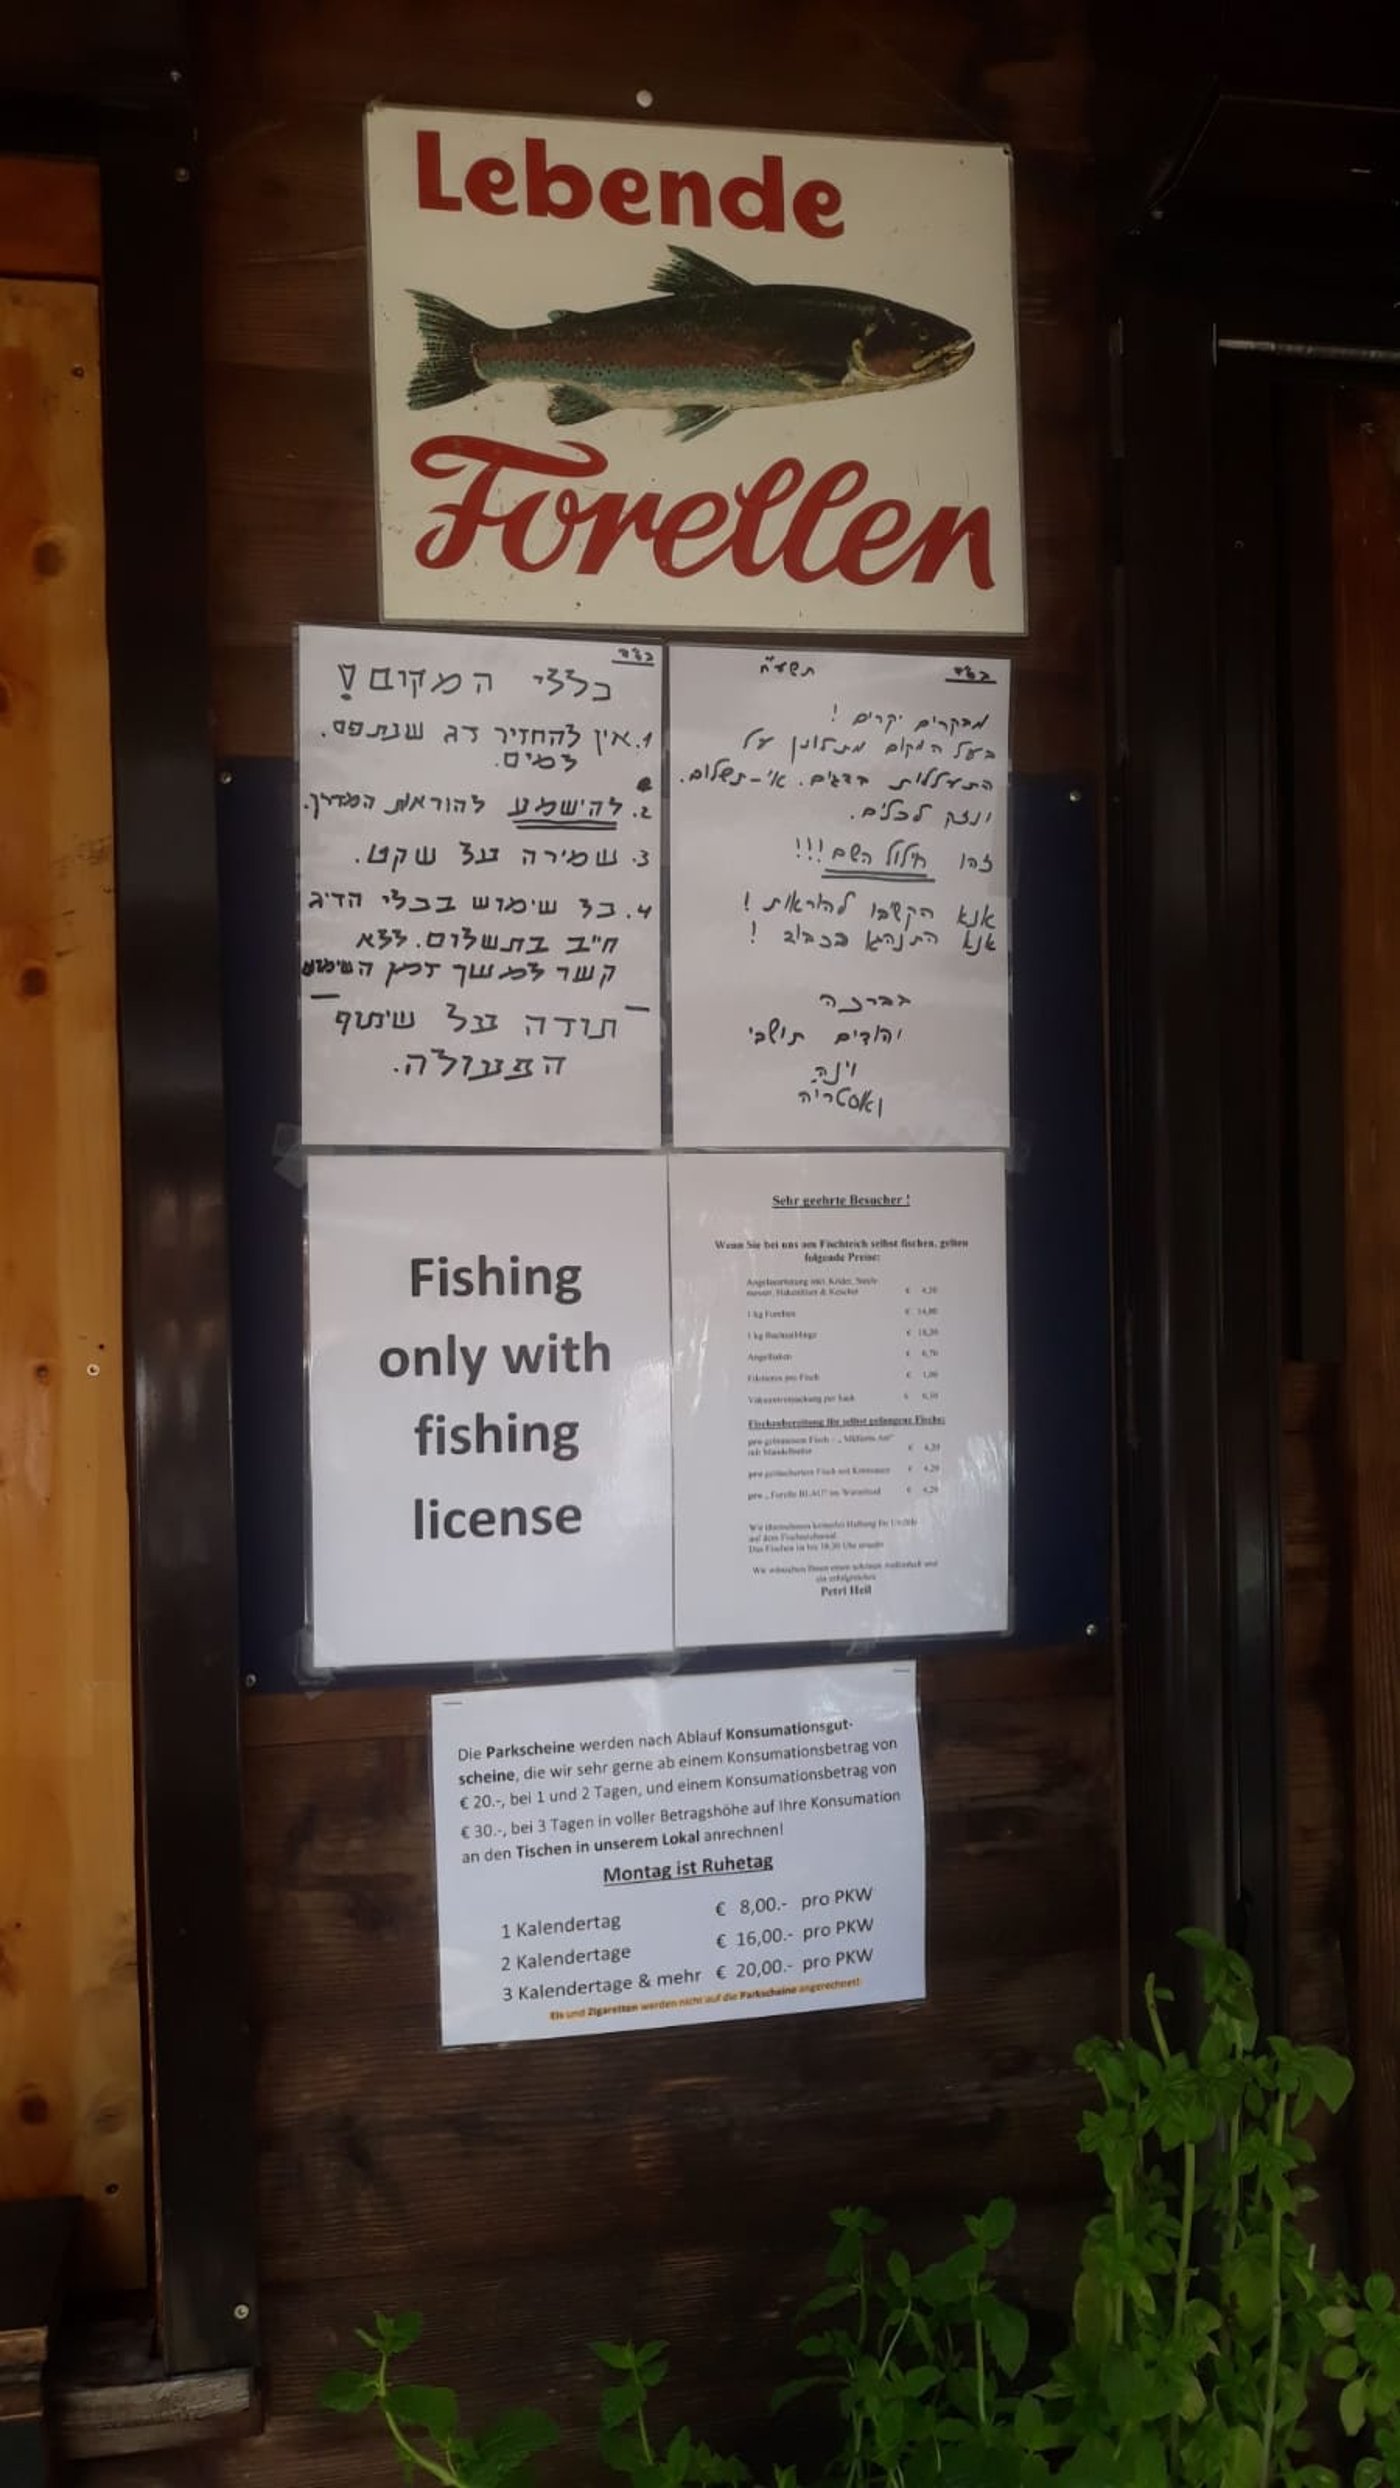 Lebende
Forellen
בס״ד
כללי המקום!
1. אין להחזיר דג שנתפס.
למים.
2. להישמע להוראות המדריך.
3. שמירה על שקט.
4. כל שימוש בכלי הדיג
חייב בתשלום. ללא
קשר למשך זמן השימוש
- תודה על שיתוף -
הפעולה.
בס״ד
תשע״ח
מבקרים יקרים!
בעל המקום מתלונן על
התעללות בדגים. אי-תשלום.
ונזק לכלים.
זהו חילול השם!!!
אנא הקשיבו להוראות!
אנא התנהגו בכבוד!
בברכה
יהודים תושבי
וינה
ואוסטריה
Fishing
only with
fishing
license
Sehr geehrte Besucher !
Wenn Sie bei uns am Fischteich selbst fischen, gelten
folgende Preise:
1 kg Forellen
Angelhaken
Filetieren pro Fisch € 1,00
Vakuumverpackung pro Sack
Fischzubereitung für selbst gefangene Fische:
€ 4,20
€ 4,20
€ 4,20
Petri Heil
Die Parkscheine werden nach Ablauf Konsumationsgut-
scheine, die wir sehr gerne ab einem Konsumationsbetrag von
€ 20.-, bei 1 und 2 Tagen, und einem Konsumationsbetrag von
€ 30.-, bei 3 Tagen in voller Betragshöhe auf Ihre Konsumation
an den Tischen in unserem Lokal anrechnen!
Montag ist Ruhetag
1 Kalendertag € 8,00.- pro PKW
2 Kalendertage € 16,00.- pro PKW
3 Kalendertage & mehr € 20,00.- pro PKW
Eis und Zigaretten werden nicht auf die Parkscheine angerechnet!